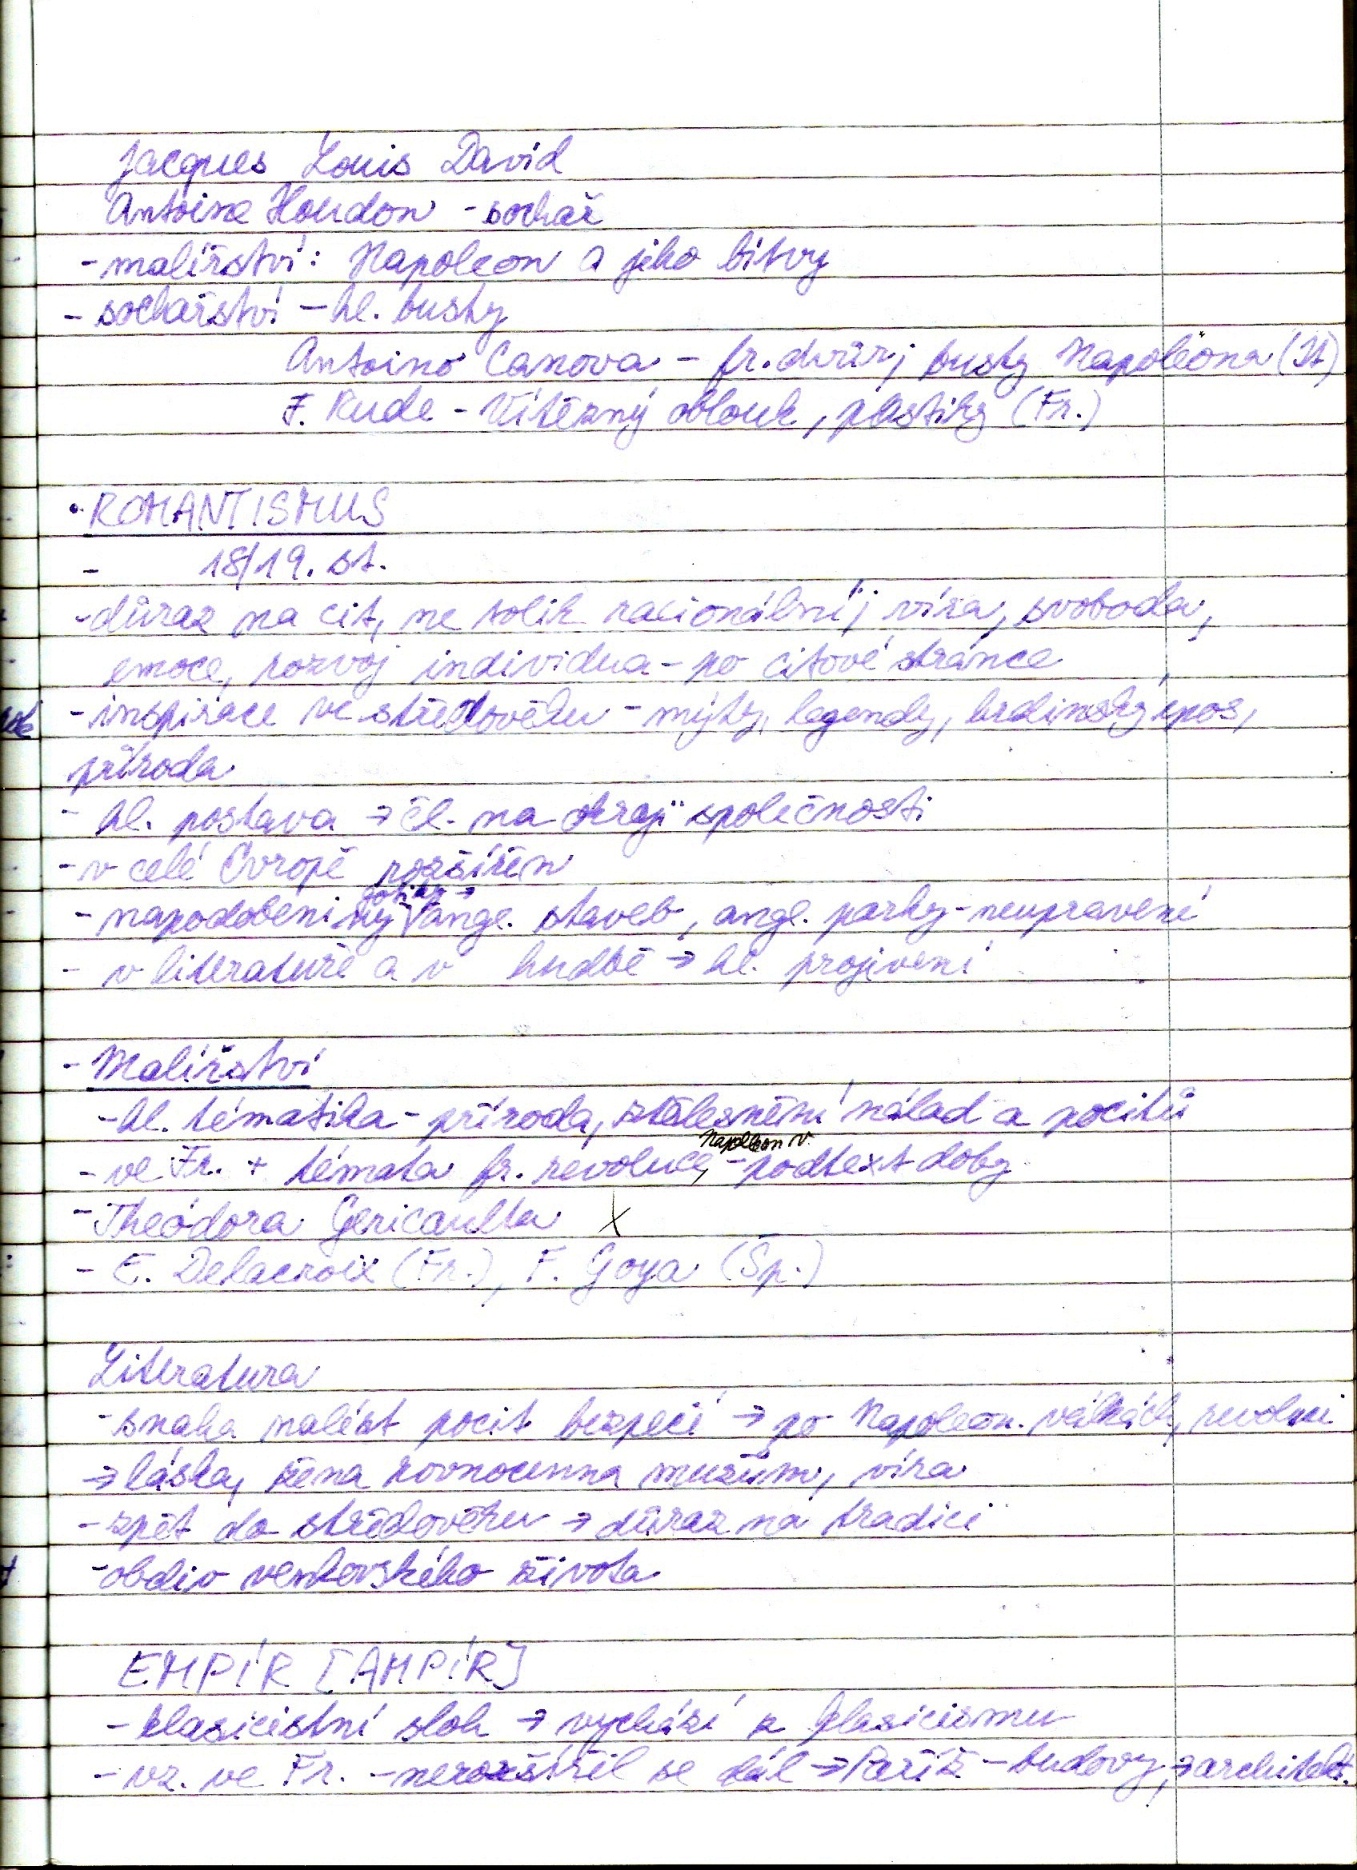 Jacques Louis David
Antoine Houdon - sochař
- malířství: Napoleon a jeho bitvy
- sochařství - hl. busty
Antoino Canova - fr. dvůr, busty Napoleona (It)
F. Rude - Vítězný oblouk, plastiky (Fr.)
• ROMANTISMUS
- 18/19. st.
- důraz na cit, ne tolik racionální; víra, svoboda,
emoce, rozvoj individua - po citové stránce
- inspirace ve středověku - mýty, legendy, hrdinský epos,
příroda
- hl. postava → čl. na okraji společnosti
- v celé Evropě rozšířen
- napodobeniny gotiky → angl. staveb, angl. parky - neupravení
- v literatuře a v hudbě → hl. projivení
- Malířství
- hl. tématika - příroda, ztělesnění nálad a pocitů
- ve Fr. + témata fr. revoluce, Napoleon v. - podtext doby
- Theódora Gericaulta X
- E. Delacroix (Fr.), F. Goya (Šp.)
Literatura
- snaha nalézt pocit bezpečí → po Napoleon. válkách, revoluci
→ láska, žena rovnocenna mužům, víra
- zpět do středověku → důraz na tradici
- obdiv venkovského života
EMPÍR [AMPÍR]
- klasicistní sloh → vychází z klasicismu
- vz. ve Fr. - nerozšířil se dál → Paříž - budovy, → architekt.